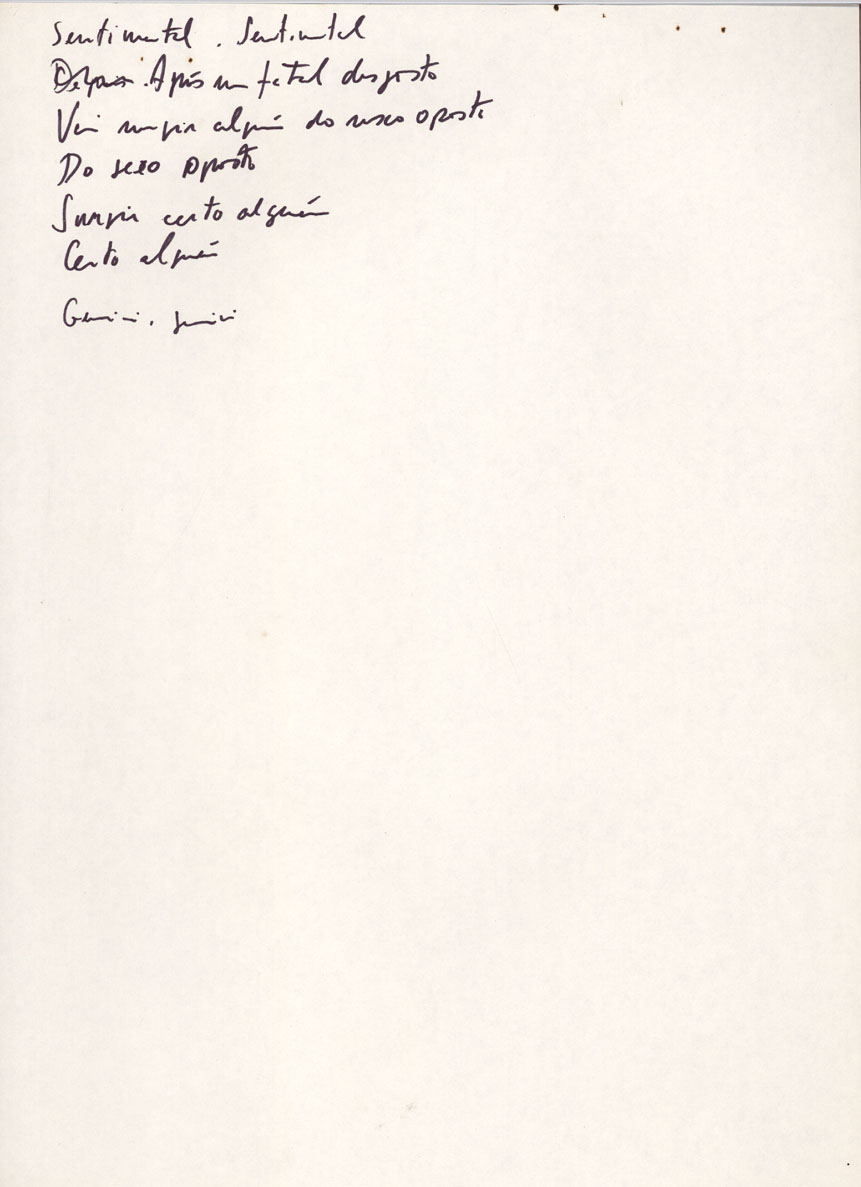 Sentimental. Sentimental
Depois. Após um fatal desgosto
Vai surgir alguém do sexo oposto
Do sexo oposto
Surgir certo alguém
Certo alguém
Gemini. Gemini